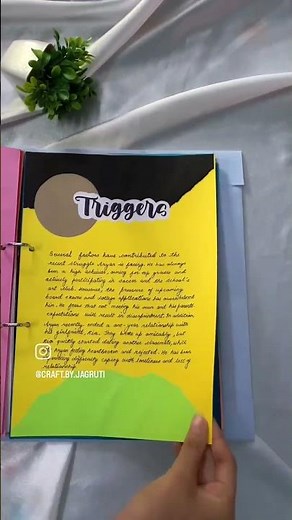 Triggers
Several factors have contributed to the
recent struggle Aryan is facing. He has always
been a high achiever, aiming for top grades and
actively participating in soccer and the school's
art club. However, the pressure of upcoming
board exams and college applications has
He fears that not meeting his own and his parents'
expectations will result in disappointment. In addition
Aryan recently ended a one-year relationship with
his girlfriend, Kim. They broke up amicably, but
Kim quickly started dating another classmate, while
Aryan feeling heartbroken and rejected. He has been
difficulty coping with loneliness and loss of
relationship.
@CRAFT.BY.JAGRUTI